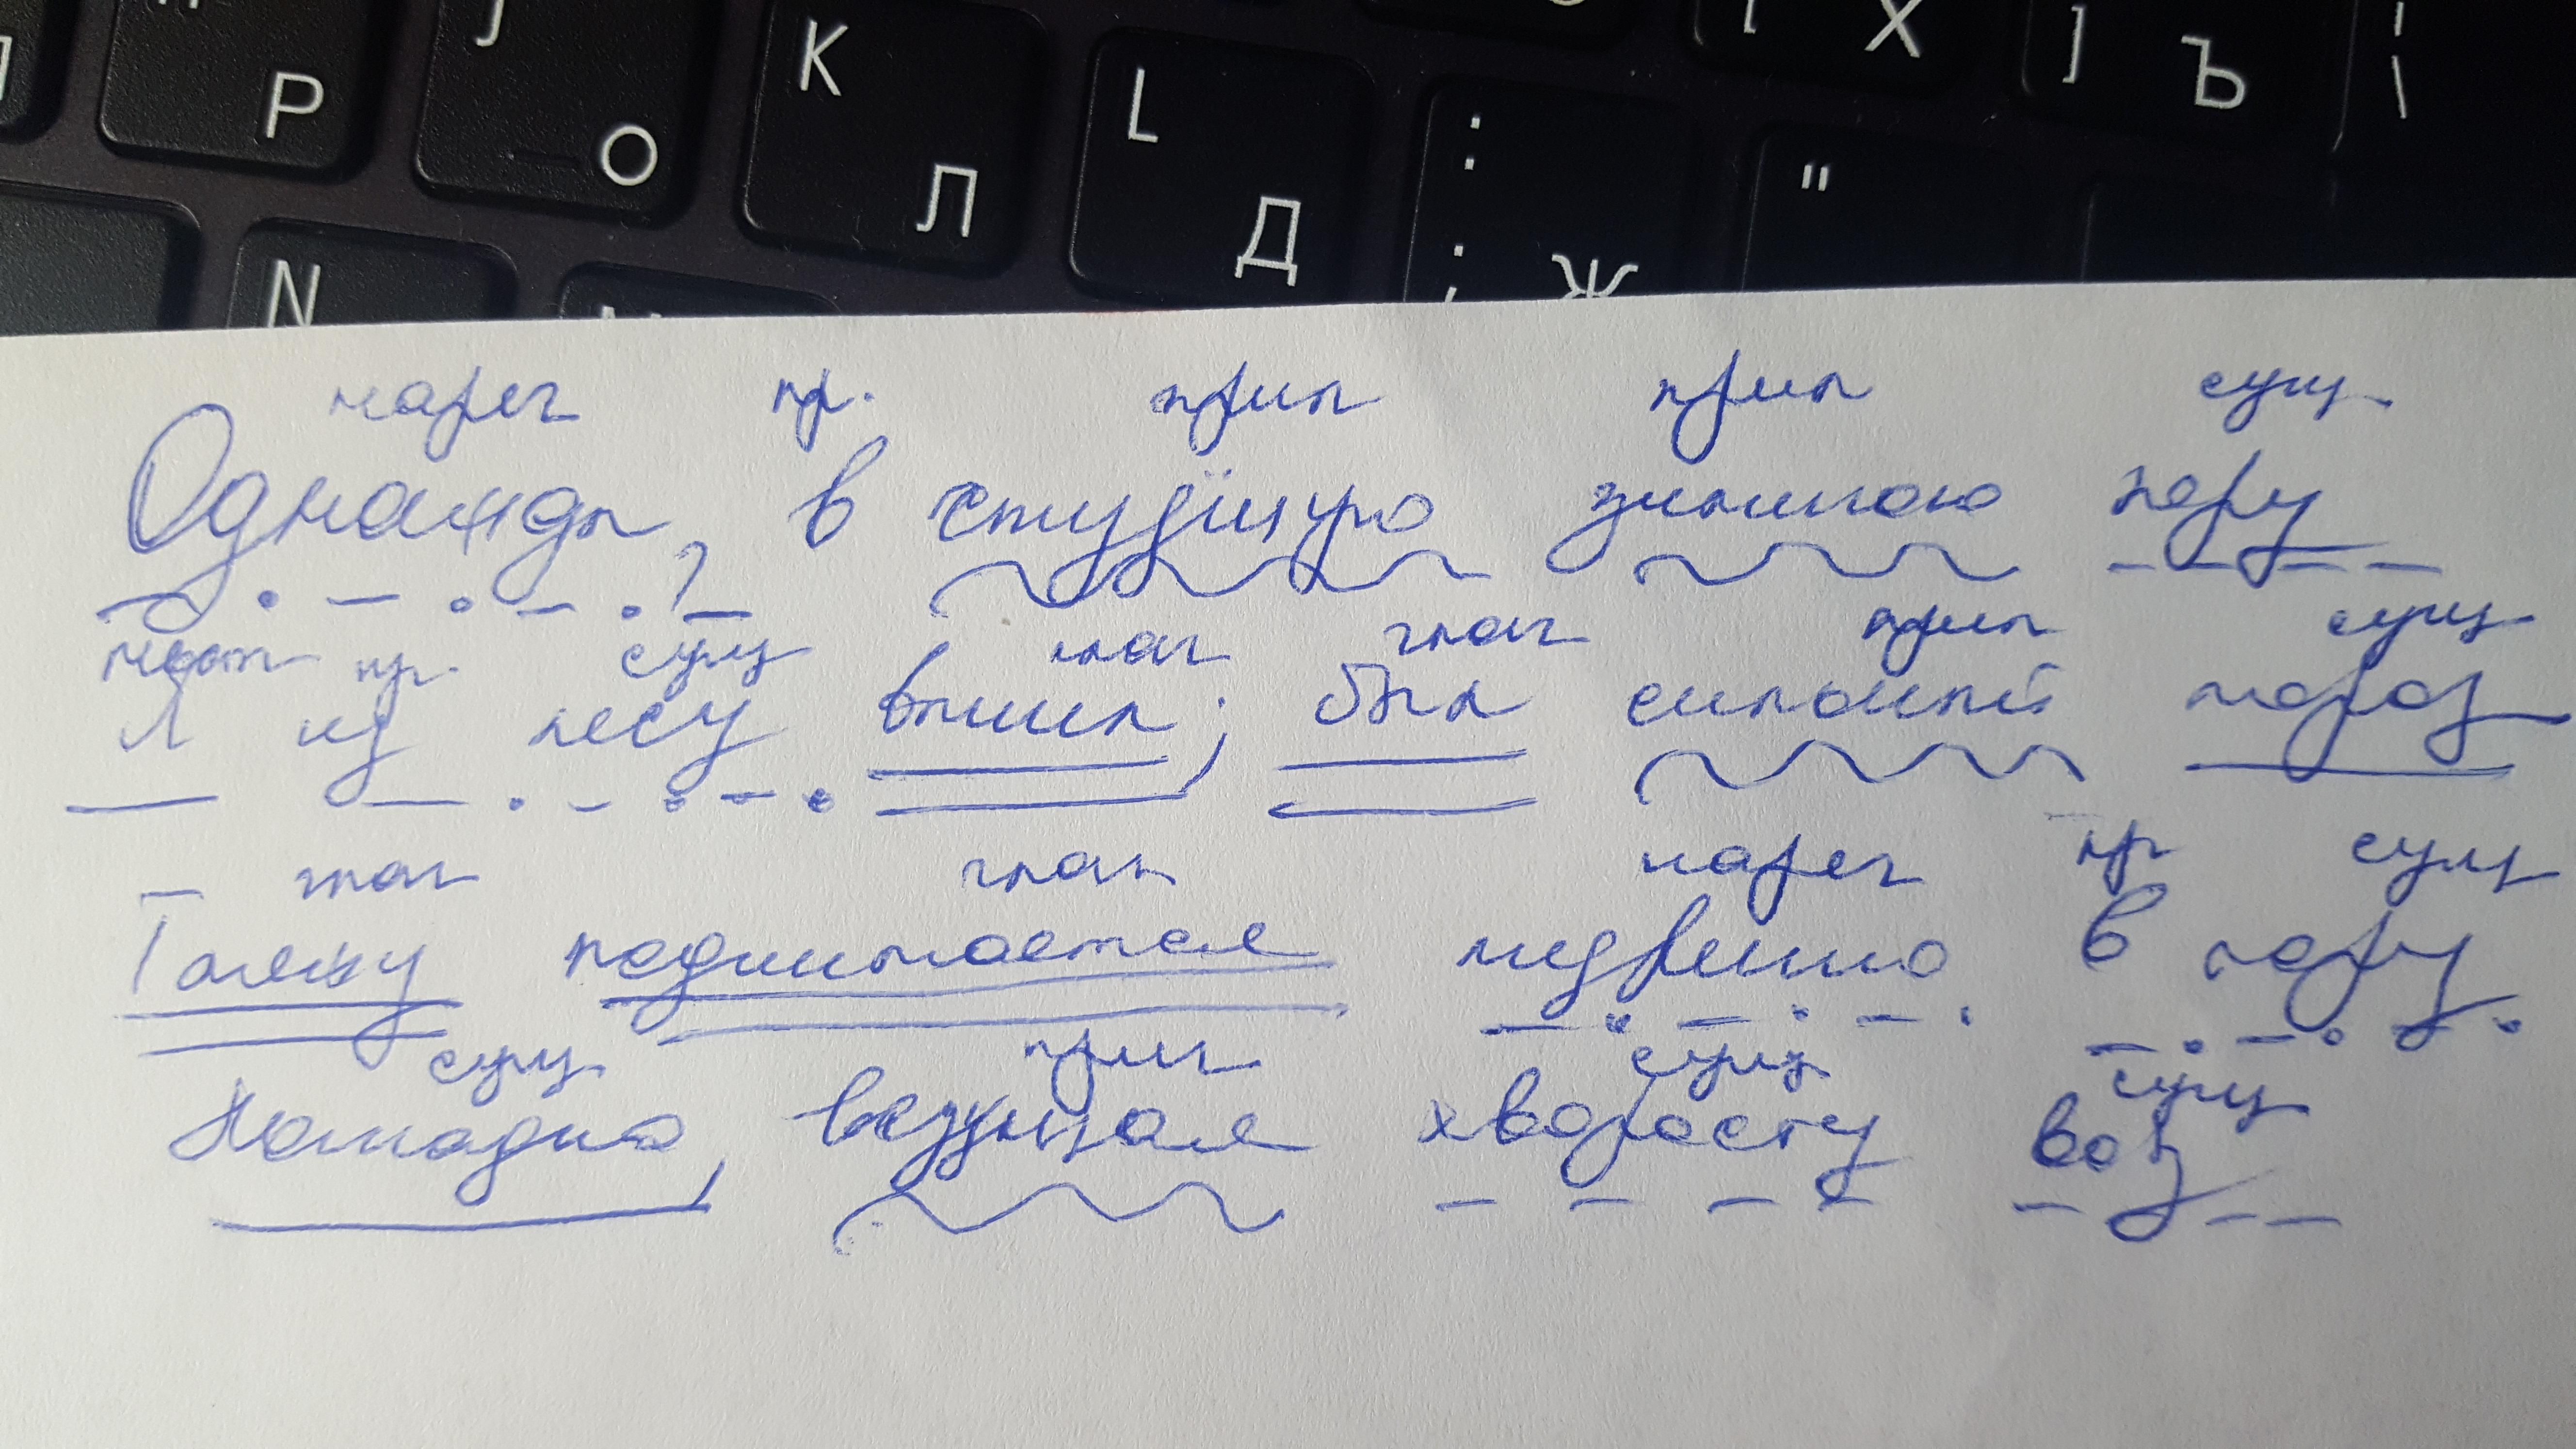 Р J О K Л L Д : ; Ж " [ Х ] Ъ | \
N
нареч пр. прил прил сущ
Однажды, в студёную зимнюю пору
мест пр. сущ глаг глаг прил сущ
Я из лесу вышел; был сильный мороз
глаг глаг нареч пр сущ
Гляжу поднимается медленно в гору
сущ прич сущ сущ
Лошадка, везущая хворосту воз